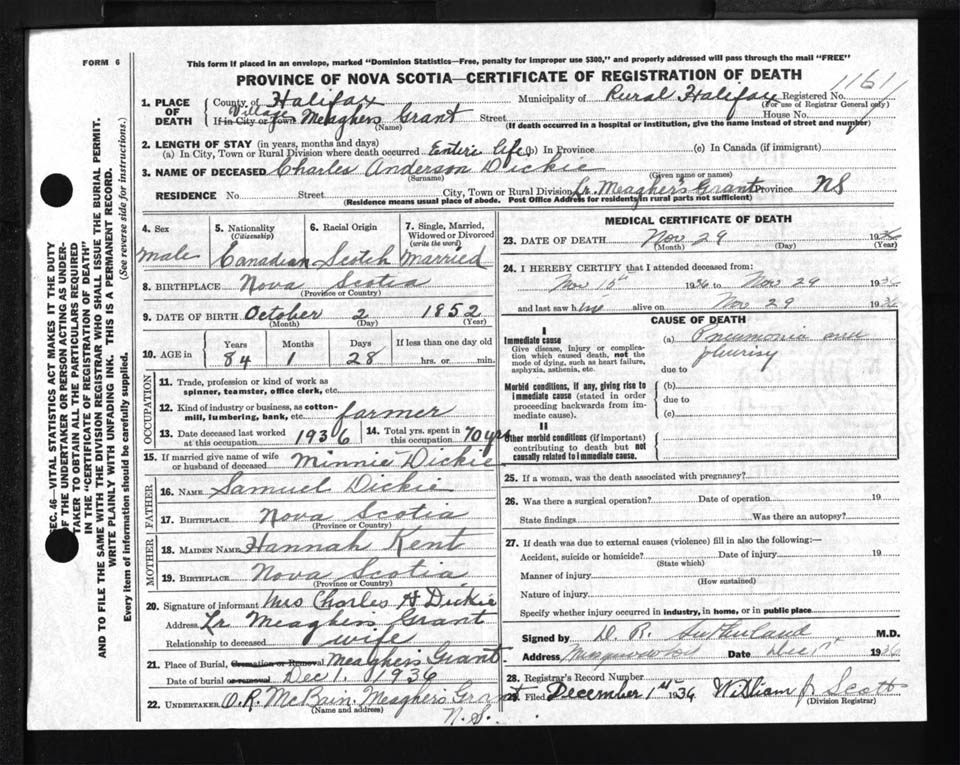 FORM 6
This form if placed in an envelope, marked "Dominion Statistics—Free, penalty for improper use $300," and properly addressed will pass through the mail "FREE"
PROVINCE OF NOVA SCOTIA—CERTIFICATE OF REGISTRATION OF DEATH
1161
1. PLACE OF DEATH County of Halifax Municipality of Rural Halifax Registered No.
(For use of Registrar General only)
Village If in City or Town Meaghers Grant Street House No.
(Name) (If death occurred in a hospital or institution, give the name instead of street and number)
2. LENGTH OF STAY (in years, months and days)
(a) In City, Town or Rural Division where death occurred Entire life (b) In Province (c) In Canada (if immigrant)
3. NAME OF DECEASED Charles Anderson Dickie
(Surname) (Given name or names)
RESIDENCE No. Street City, Town or Rural Division Lr. Meagher's Grant Province NS
(Residence means usual place of abode. Post Office Address for residents in rural parts not sufficient)
4. Sex 5. Nationality 6. Racial Origin 7. Single, Married, Widowed or Divorced
(Citizenship) (write the word)
Male Canadian Scotch Married
8. BIRTHPLACE Nova Scotia
(Province or Country)
9. DATE OF BIRTH October 2 1852
(Month) (Day) (Year)
10. AGE in Years Months Days If less than one day old
84 1 28 hrs. or min.
OCCUPATION
11. Trade, profession or kind of work as spinner, teamster, office clerk, etc.
12. Kind of industry or business, as cotton-mill, lumbering, bank, etc. farmer
13. Date deceased last worked at this occupation 1936 14. Total yrs. spent in this occupation 70 yrs
15. If married give name of wife or husband of deceased Minnie Dickie
FATHER
16. NAME Samuel Dickie
17. BIRTHPLACE Nova Scotia
(Province or Country)
MOTHER
18. MAIDEN NAME Hannah Kent
19. BIRTHPLACE Nova Scotia
(Province or Country)
20. Signature of informant Mrs Charles A Dickie
Address Lr Meaghers Grant
Relationship to deceased wife
21. Place of Burial, Cremation or Removal Meaghers Grant
Date of burial or removal Dec 1. 1936
22. UNDERTAKER O.R. McBain. Meaghers Grant
(Name and address) N.S.
MEDICAL CERTIFICATE OF DEATH
23. DATE OF DEATH Nov 29 1936
(Month) (Day) (Year)
24. I HEREBY CERTIFY that I attended deceased from:
Nov 15th 1936 to Nov 29 1936
and last saw h im alive on Nov 29 1936
CAUSE OF DEATH
I
Immediate cause
Give disease, injury or complication which caused death, not the mode of dying, such as heart failure, asphyxia, asthenia, etc.
(a) Pneumonia and pleurisy
due to
Morbid conditions, if any, giving rise to immediate cause (stated in order proceeding backwards from immediate cause).
(b)
due to
(c)
II
Other morbid conditions (if important) contributing to death but not causally related to immediate cause.
25. If a woman, was the death associated with pregnancy?
26. Was there a surgical operation? Date of operation 19
State findings Was there an autopsy?
27. If death was due to external causes (violence) fill in also the following:—
Accident, suicide or homicide? Date of injury 19
(State which)
Manner of injury
(How sustained)
Nature of injury
Specify whether injury occurred in industry, in home, or in public place
Signed by D. R. Sutherland M.D.
Address Date Dec 1936
28. Registrar's Record Number
29. Filed December 1st 1936 William J. Scott
(Division Registrar)
SEC. 46—VITAL STATISTICS ACT MAKES IT THE DUTY
OF THE UNDERTAKER OR PERSON ACTING AS UNDER-
TAKER TO OBTAIN ALL THE PARTICULARS REQUIRED
IN THE "CERTIFICATE OF REGISTRATION OF DEATH"
AND TO FILE THE SAME WITH THE DIVISION REGISTRAR WHO SHALL ISSUE THE BURIAL PERMIT.
WRITE PLAINLY WITH UNFADING INK. THIS IS A PERMANENT RECORD.
Every item of information should be carefully supplied. (See reverse side for instructions.)